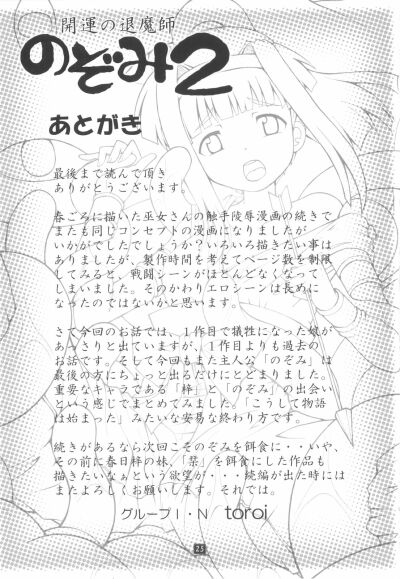 開運の退魔師
のぞみ2
あとがき
最後まで読んで頂き
ありがとうございます。
春ごろに描いた巫女さんの触手陵辱漫画の続きで
またも同じコンセプトの漫画になりましたが
いかがでしたでしょうか？いろいろ描きたい事は
ありましたが、製作時間を考えてページ数を制限
してみると、戦闘シーンがほとんどなくなって
しまいました。そのかわりエロシーンは長めに
なったのではないかと思います。
さて今回のお話では、１作目で犠牲になった娘が
あっさりと出ていますが、１作目よりも過去の
お話です。そして今回もまた主人公「のぞみ」は
最後の方にちょっと出るだけにとどまりました。
重要なキャラである「梓」と「のぞみ」の出会い
という感じでまとめてみました。「こうして物語
は始まった」みたいな安易な終わり方です。
続きがあるなら次回こそのぞみを餌食に・・いや、
その前に春日梓の妹、「栞」を餌食にした作品も
描きたいなぁという欲望が・・・続編が出た時には
またよろしくお願いします。それでは。
グループＩ・Ｎ toroi
25